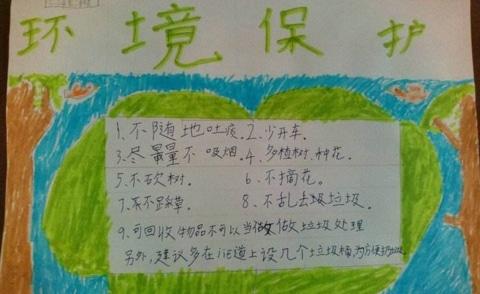 环境保护
1、不随地吐痰 2、少开车.
3、尽量不吸烟. 4、多植树、种花。
5、不砍树. 6、不摘花。
7、不踩草. 8、不乱丢垃圾.
9、可回收物品不可以当做垃圾处理
另外,建议多在街道上设几个垃圾桶,为方便扔垃圾